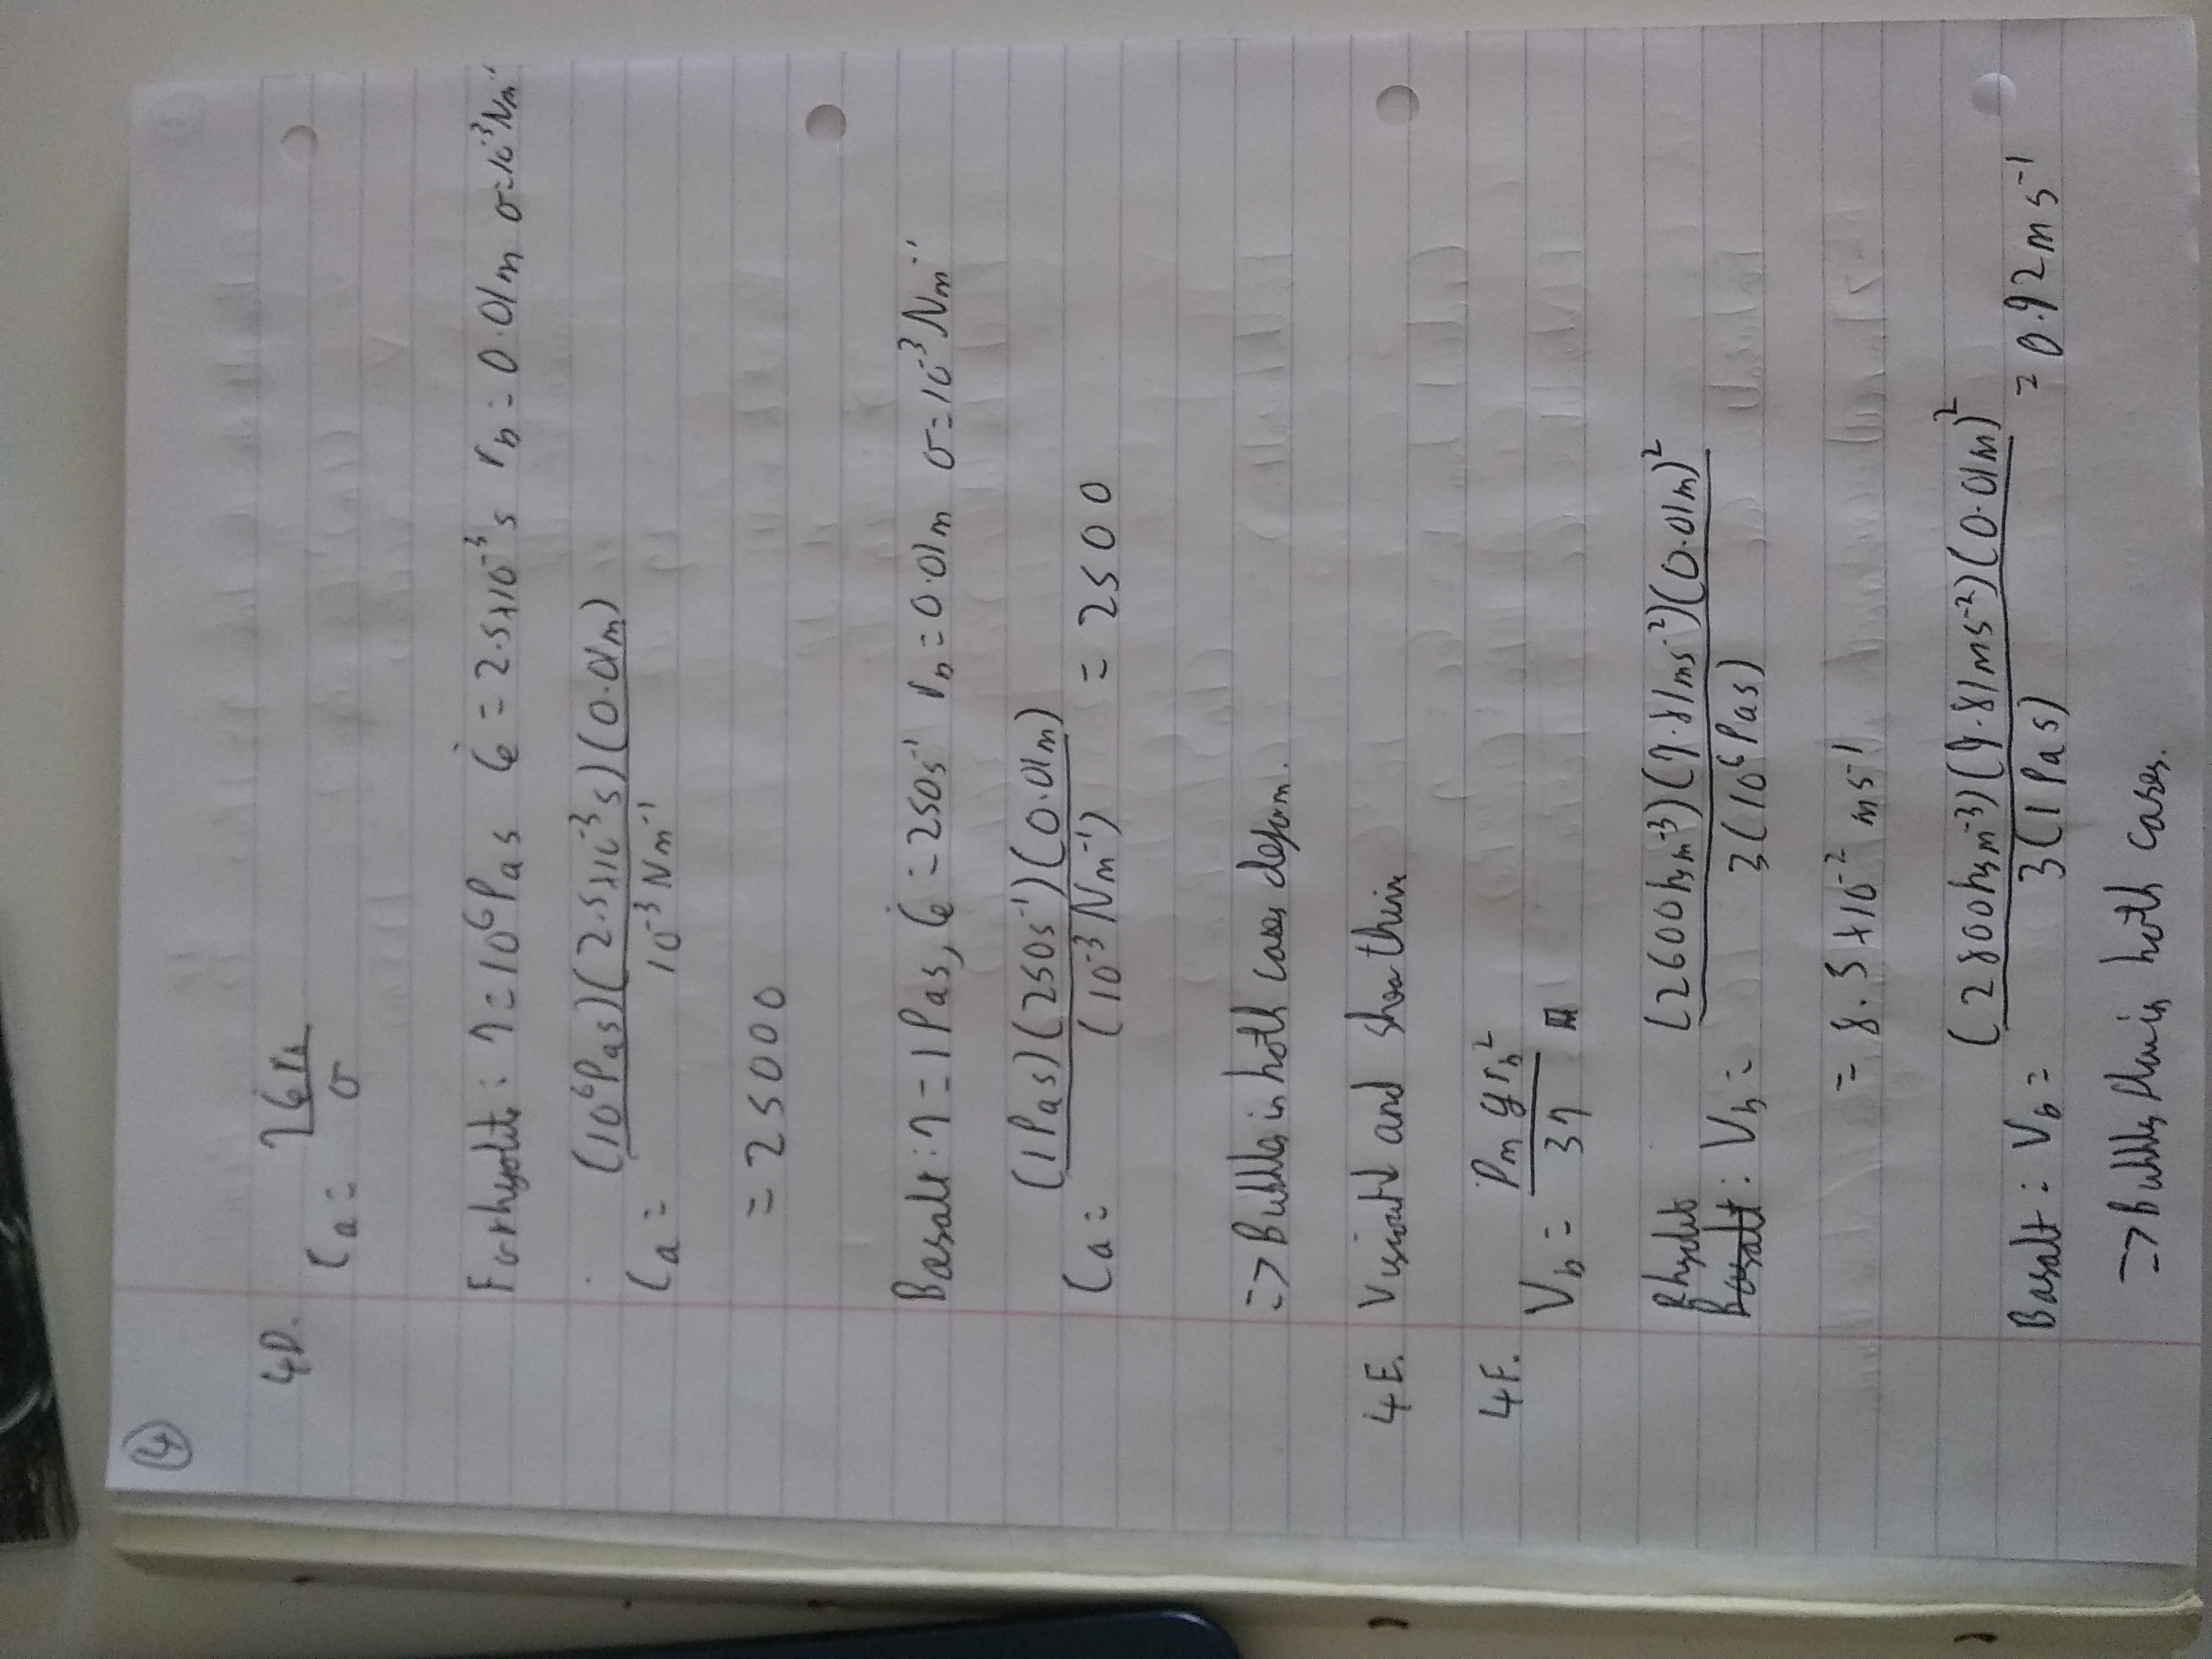 4
4D. Ca = ηε̇r_b / σ
For rhyolite: η = 10⁶ Pa s ε̇ = 2.5×10⁻³ s r_b = 0.01m σ = 10⁻³ Nm⁻¹
Ca = (10⁶ Pa s)(2.5×10⁻³ s)(0.01m) / 10⁻³ Nm⁻¹
= 25000
Basalt: η = 1 Pa s, ε̇ = 250s⁻¹ r_b = 0.01m σ = 10⁻³ Nm⁻¹
Ca = (1 Pa s)(250s⁻¹)(0.01m) / (10⁻³ Nm⁻¹) = 2500
=> Bubbles in both cases deform.
4E. and shear thin
4F. V_b = ρ_m g r_b² / 3η
Rhyolite
Basalt: V_b = (2600 kg m⁻³)(9.81ms⁻²)(0.01m)² / 3(10⁶ Pa s)
= 8.5×10⁻² ms⁻¹
Basalt: V_b = (2800 kg m⁻³)(9.81ms⁻²)(0.01m)² / 3(1 Pa s) = 0.92 ms⁻¹
=> Bubbles in both cases.